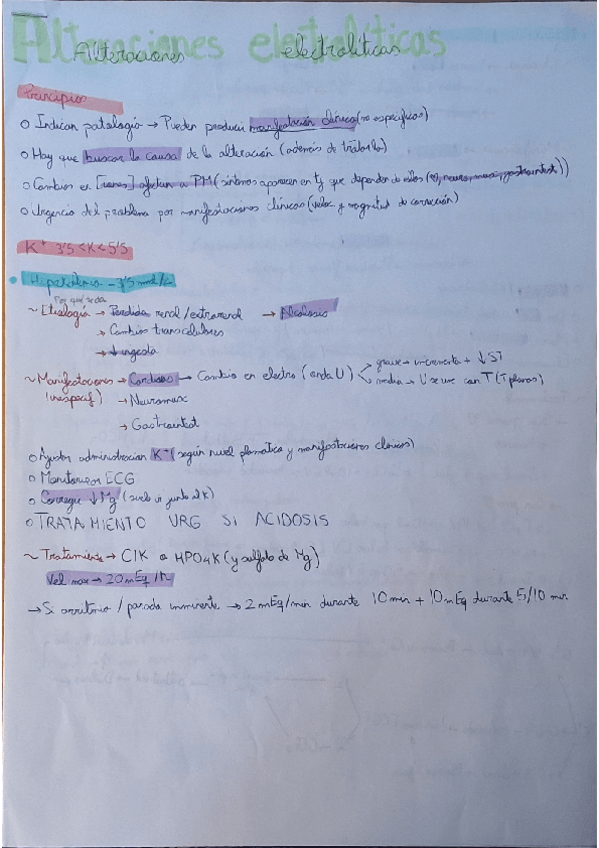 Alteraciones electrolíticas
Alteraciones electrolíticas
Principios
o Indican patología → Pueden producir manifestación clínica (no específicas)
o Hay que buscar la causa de la alteración (además de tratarla)
o Cambios en [iones] afectan a PM (síntomas aparecen en tj que dependen de ellos
o Urgencia del problema por manifestaciones clínicas (veloc. y magnitud de corrección)
K+ 3'5 < K < 5'5
Hipokalemia - 3'5
Por qué se da
~ Etiología → Perdida renal/extrarrenal → Alcalosis
→ Cambios transcelulares
→ ↓ ingesta
~ Manifestaciones → Cardiacas → Cambio en electro (onda U) grave → incrementa + ↓ ST
(inespecif) → Neuromusc media → U se une con T (T planas)
→ Gastrointest
o Ajustar administracion K+ (según nivel plasmatico y manifestaciones clínicas)
o Monitorizar ECG
o Corregir ↓ Mg (suele ir junto al K)
o TRATAMIENTO URG SI ACIDOSIS
~ Tratamiento → ClK o HPO4K (y sulfato de Mg)
Vel max → 20 mEq/h
→ Si arritmia / parada inminente → 2 mEq/min durante 10 min + 10 mEq durante 5/10 min